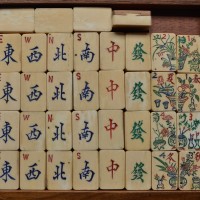 E W N S
東 西 北 南 中 發
E W N S
東 西 北 南 中 發
E W N S
東 西 北 南 中 發
E W N S
東 西 北 南 中 發